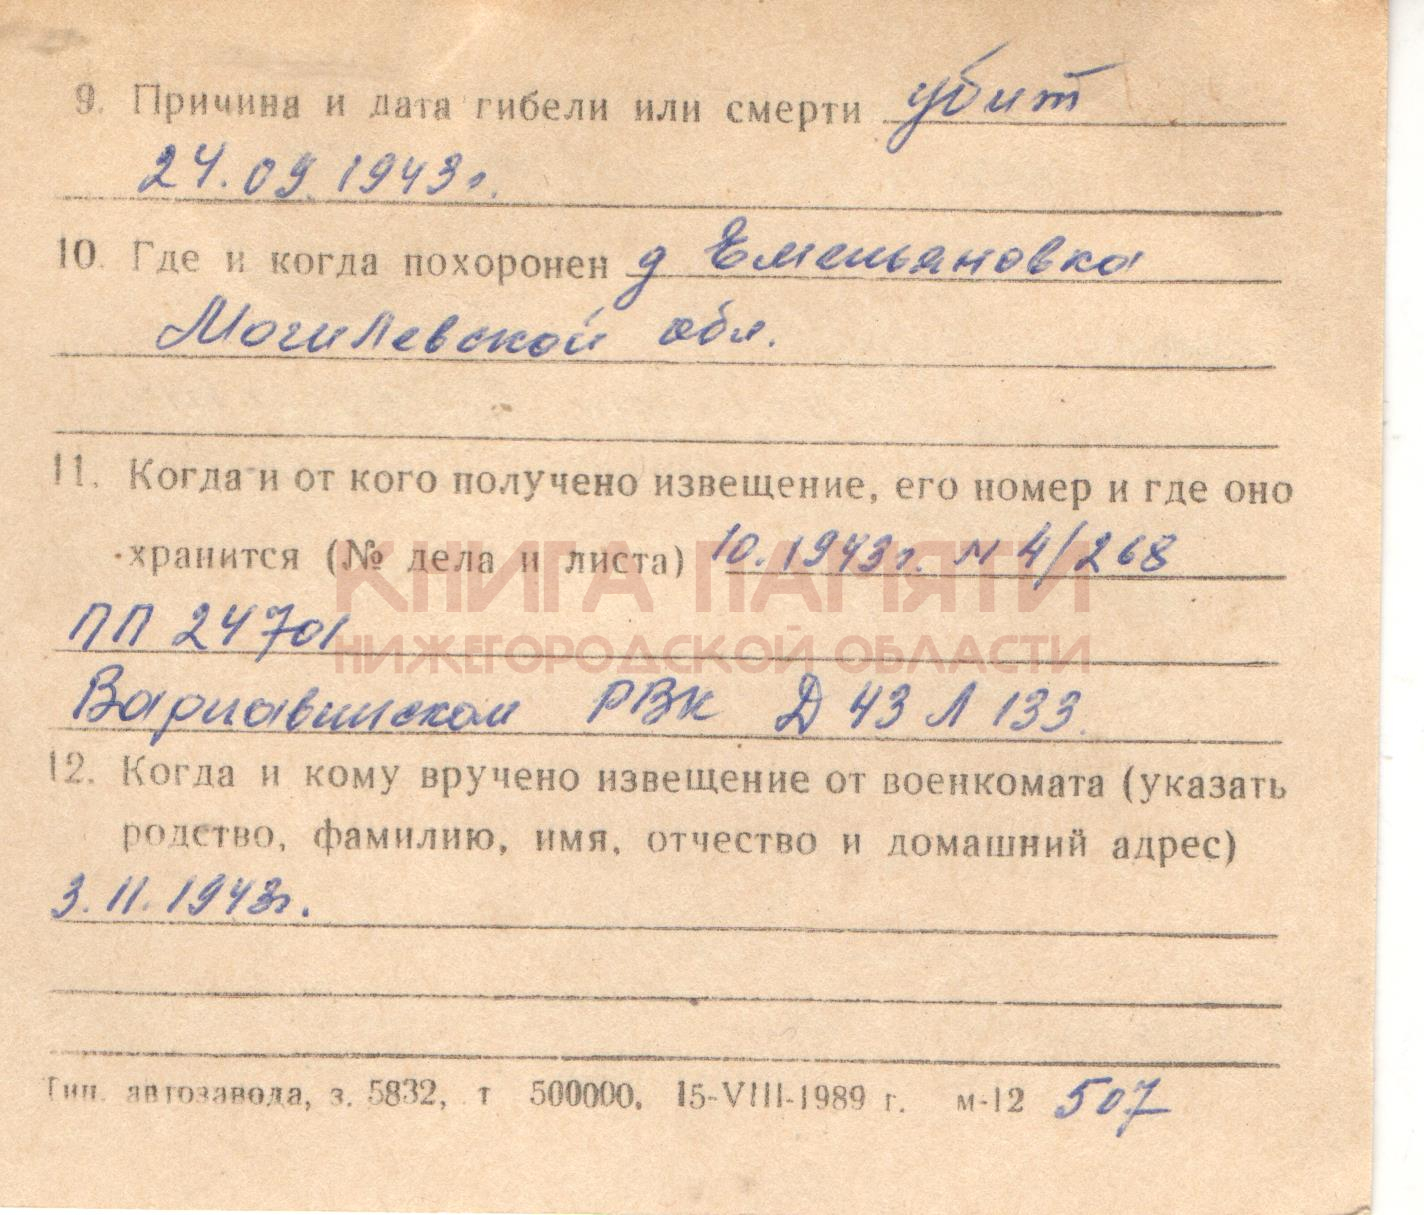 9. Причина и дата гибели или смерти убит
24.09.1943г.
10. Где и когда похоронен д Емельяновка
Могилевской обл.
11. Когда и от кого получено извещение, его номер и где оно
хранится (№ дела и листа) 10.1943г. N 4/268
КНИГА ПАМЯТИ
ПП 24701
НИЖЕГОРОДСКОЙ ОБЛАСТИ
Варнавинском РВК Д 43 Л 133.
12. Когда и кому вручено извещение от военкомата (указать
родство, фамилию, имя, отчество и домашний адрес)
3.11.1943г.
Тип. автозавода, з. 5832, т 500000, 15-VIII-1989 г. м-12 507